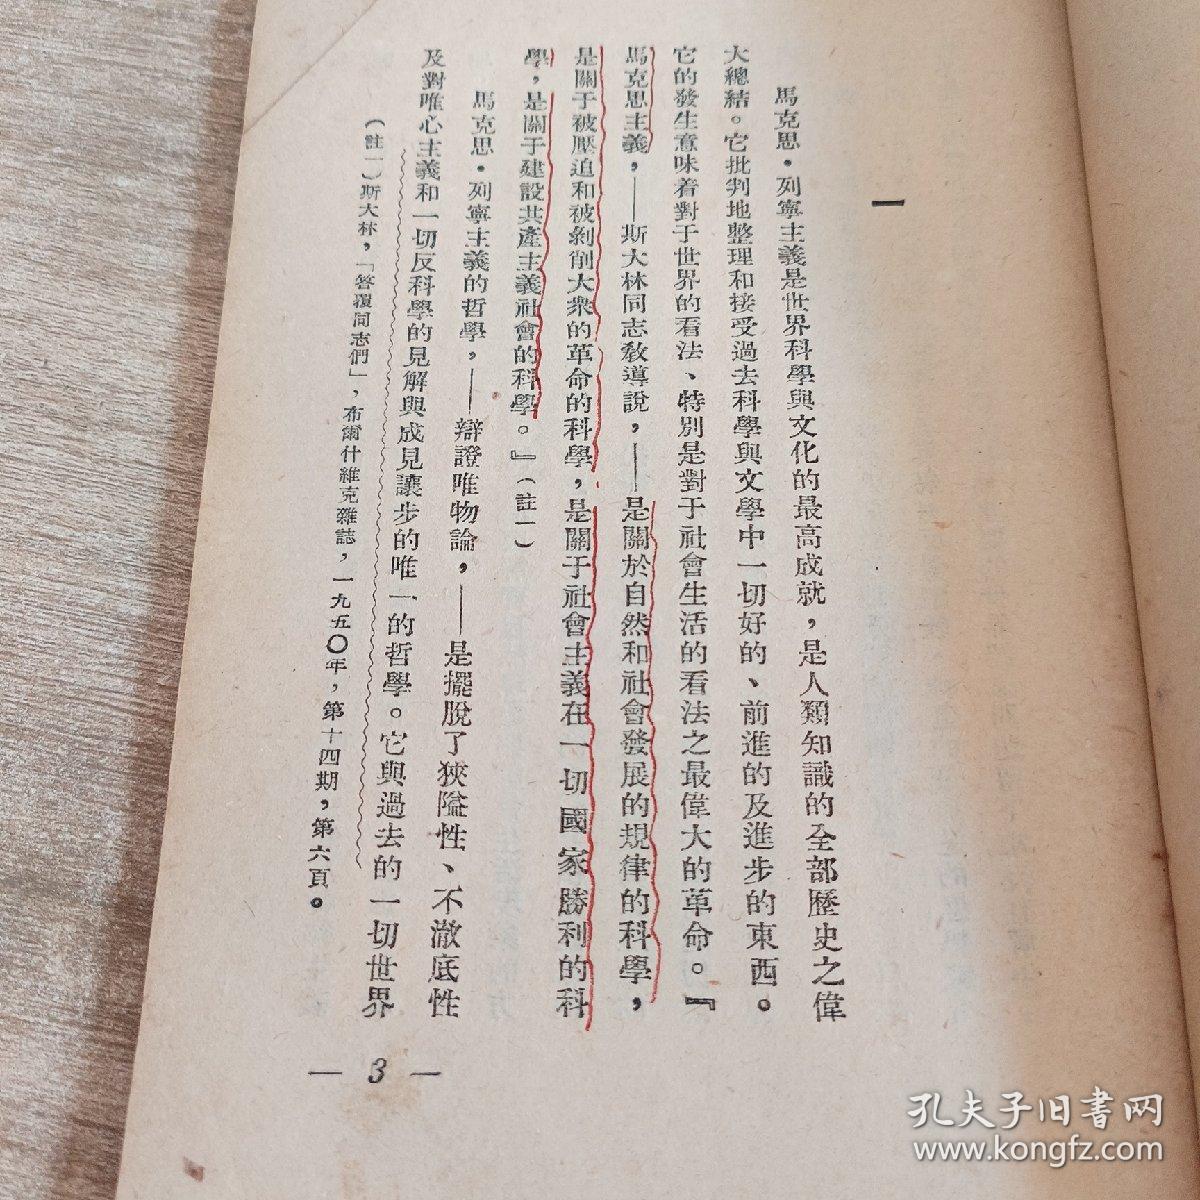 一
馬克思·列寧主義是世界科學與文化的最高成就，是人類知識的全部歷史之偉
大總結。它批判地整理和接受過去科學與文學中一切好的、前進的及進步的東西。
它的發生意味着對于世界的看法、特別是對于社會生活的看法之最偉大的革命。『
馬克思主義，——斯大林同志教導說，——是關於自然和社會發展的規律的科學，
是關于被壓迫和被剝削大衆的革命的科學，是關于社會主義在一切國家勝利的科
學，是關于建設共產主義社會的科學。』（註一）
馬克思·列寧主義的哲學，——辯證唯物論，——是擺脫了狹隘性、不澈底性
及對唯心主義和一切反科學的見解與成見讓步的唯一的哲學。它與過去的一切世界
（註一）斯大林，「答覆同志們」，布爾什維克雜誌，一九五〇年，第十四期，第六頁。
— 3 —
孔夫子旧書网
www.kongfz.com